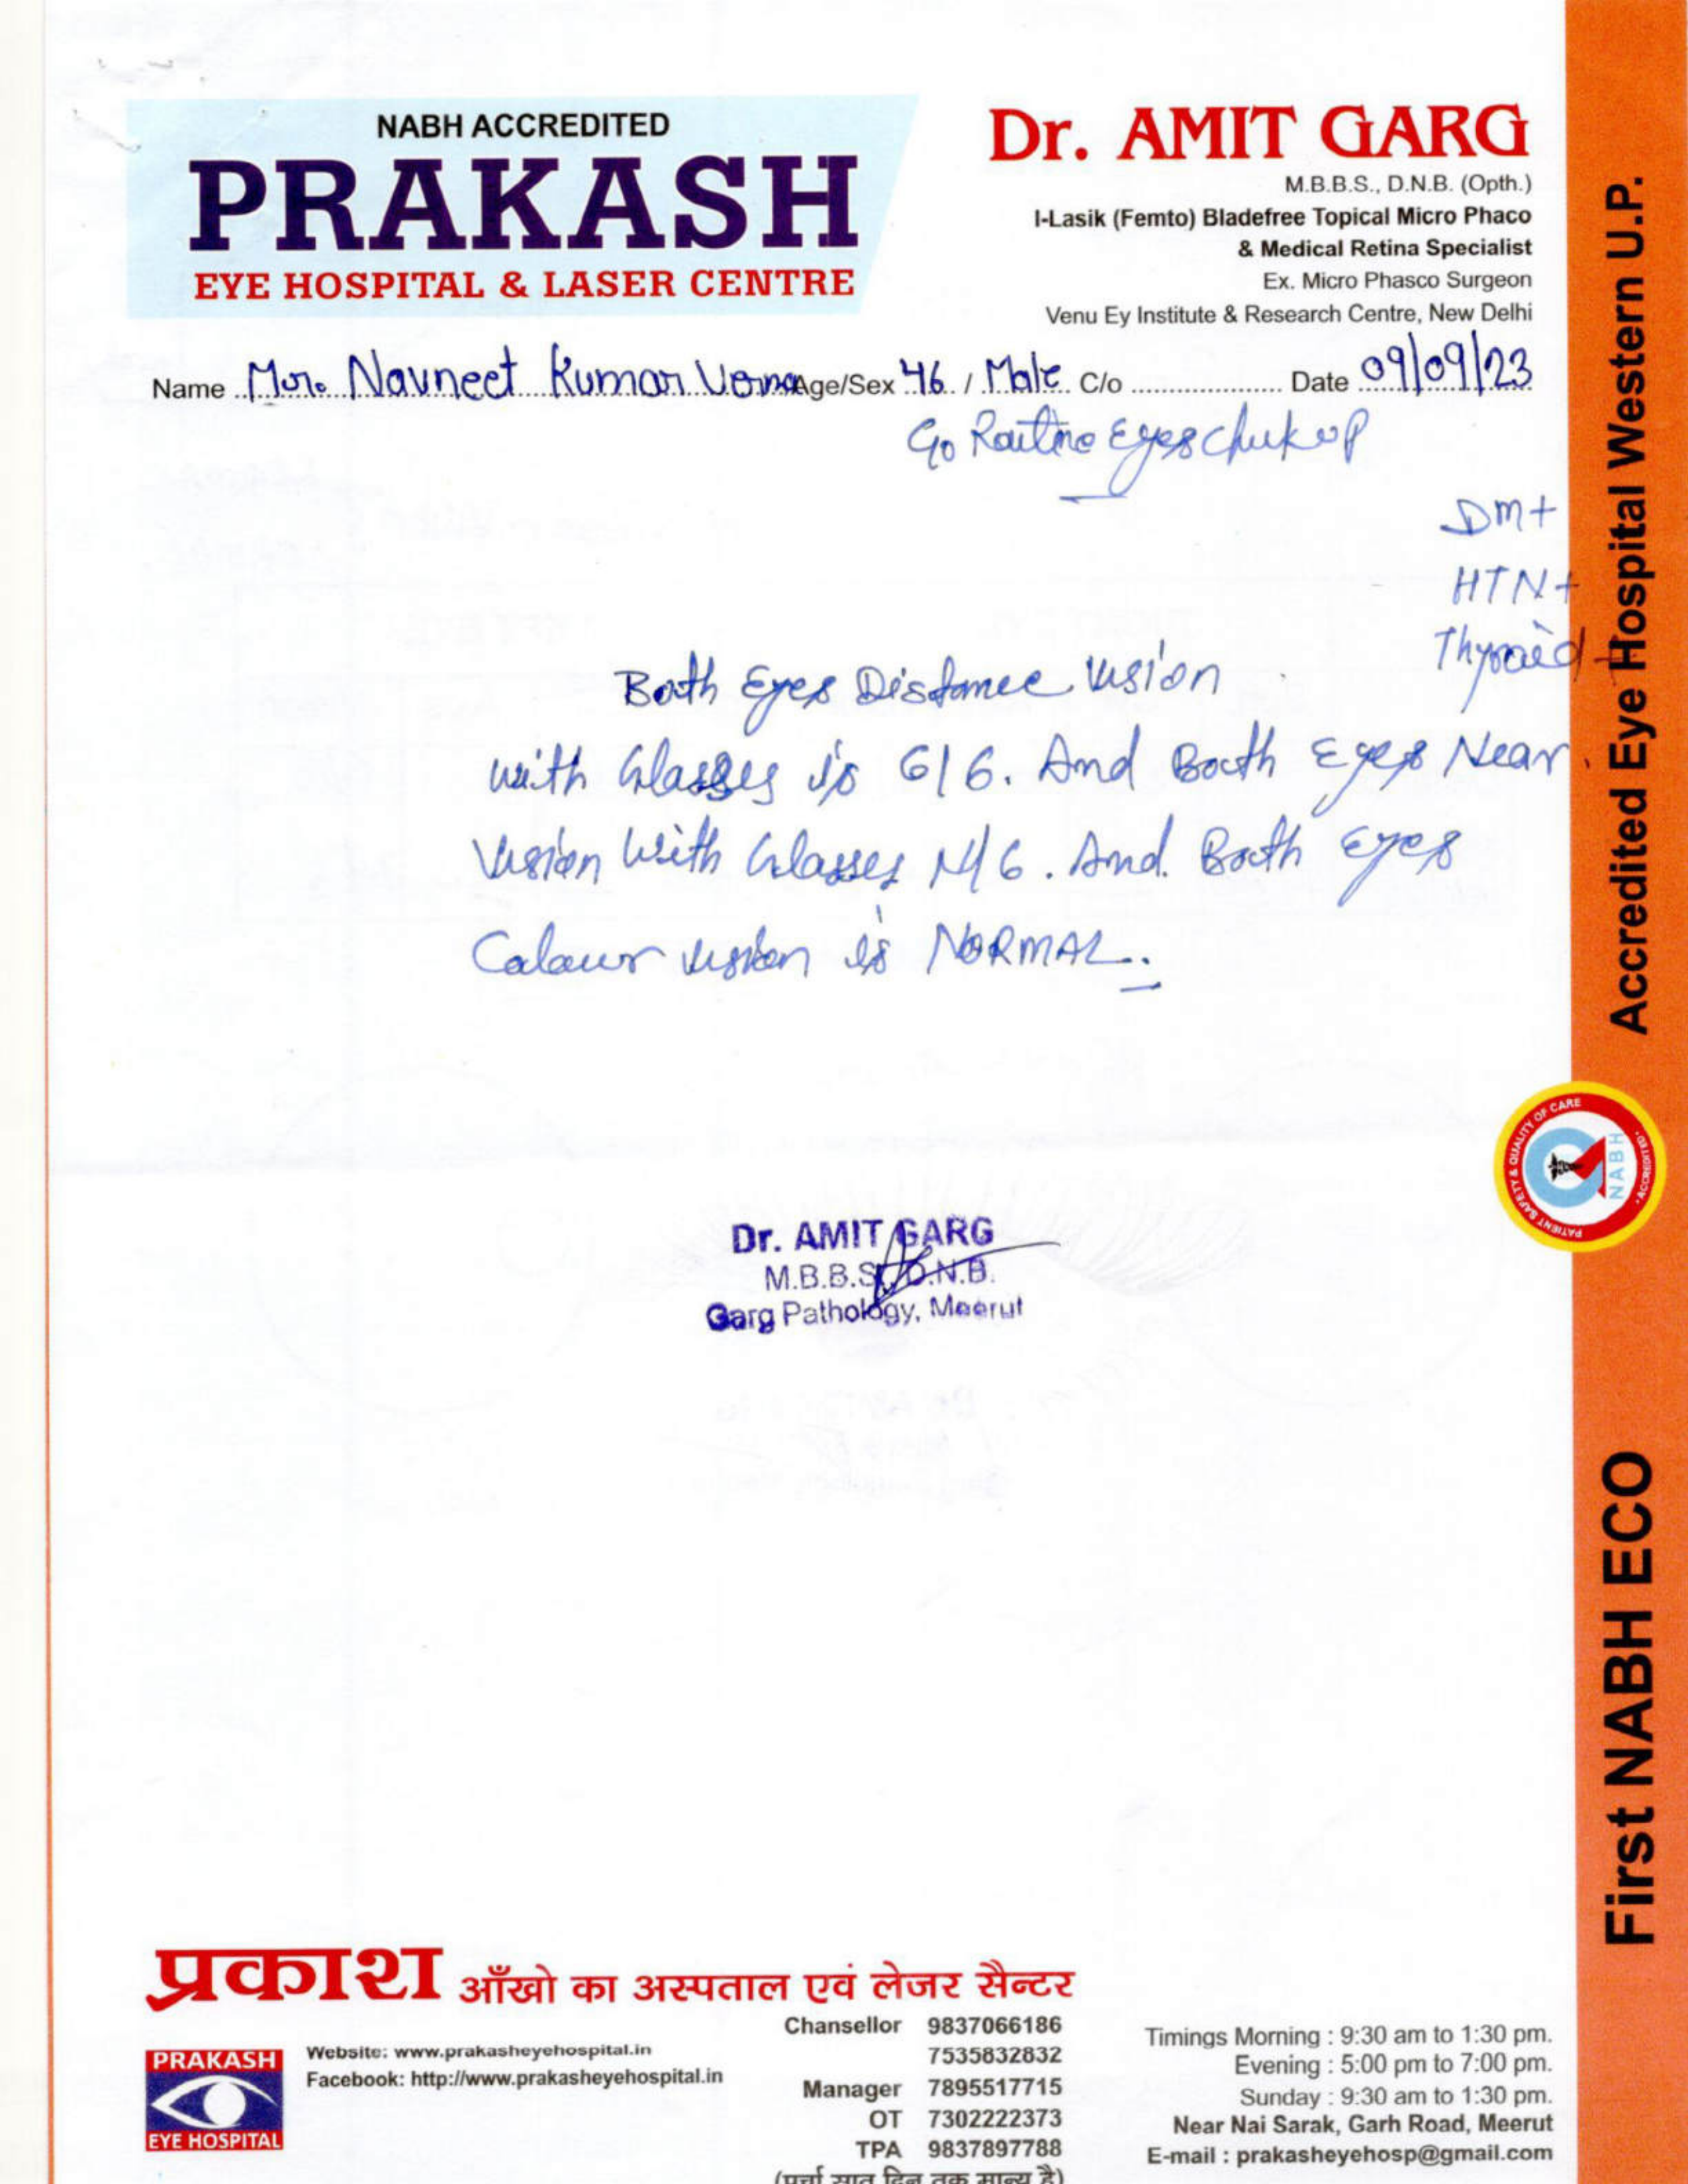 NABH ACCREDITED
PRAKASH
EYE HOSPITAL & LASER CENTRE
Dr. AMIT GARG
M.B.B.S., D.N.B. (Opth.)
I-Lasik (Femto) Bladefree Topical Micro Phaco
& Medical Retina Specialist
Ex. Micro Phasco Surgeon
Venu Ey Institute & Research Centre, New Delhi
Name Mr. Navneet Kumar Verma Age/Sex 46 / Male C/o Date 09/09/23
Routine Eyes
DM+
HTN+
Thyroid+
Both Eyes Distance Vision
with Glasses is 6/6. And Both Eyes Near
Vision With Glasses N/6. And Both Eyes
Colour vision is NORMAL.
Dr. AMIT GARG
M.B.B.S., D.N.B.
Garg Pathology, Meerut
Accredited Eye Hospital Western U.P.
PATIENT SAFETY & QUALITY OF CARE
NABH
ACCREDITED
First NABH ECO
प्रकाश आँखो का अस्पताल एवं लेजर सैन्टर
PRAKASH
EYE HOSPITAL
Website: www.prakasheyehospital.in
Facebook: http://www.prakasheyehospital.in
Chansellor 9837066186
7535832832
Manager 7895517715
OT 7302222373
TPA 9837897788
(पर्चा सात दिन तक मान्य है)
Timings Morning : 9:30 am to 1:30 pm.
Evening : 5:00 pm to 7:00 pm.
Sunday : 9:30 am to 1:30 pm.
Near Nai Sarak, Garh Road, Meerut
E-mail : prakasheyehosp@gmail.com